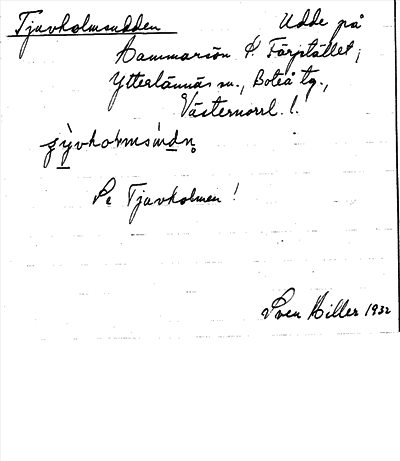 Tjuvholmsudden Udde på
Hammarsön S. Färjstället,
Ytterlännäs sn., Boteå tg.,
Västernorrl. l.
Se Tjuvholmen!
Sven Hiller 1932